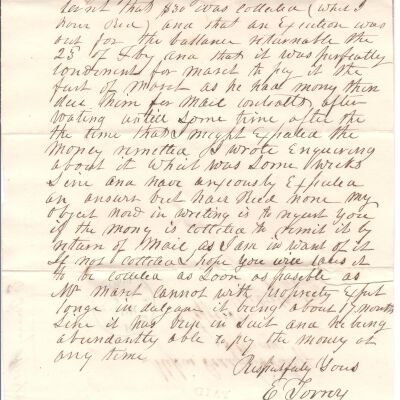 count that $30 was collected (which
I have Recd) and that an Execution was
out for the ballance returnable the
25 of Feby and that it was perfectly
convenient for March to pay it the
first of March as he had mony then
due them for Mail contracts after
waiting untill some time after the
the time that I might Expected the
Money remitted I wrote Enquireing
about it which was some weeks
Sinc and have anxiously Expected
an answer but have Recd none my
object now in writing is to request you
if the mony is collected to remit it by
return of Mail as I am in want of it
If not collected I hope you will caus it
to be collected as soon as posable as
Mr March cannot with propriety Expect
longe indulganc it being about 17 months
Sinc it has been in Suit and he being
abundantly able to pay the money at
any time
Respectfuly Yours
E Torrey